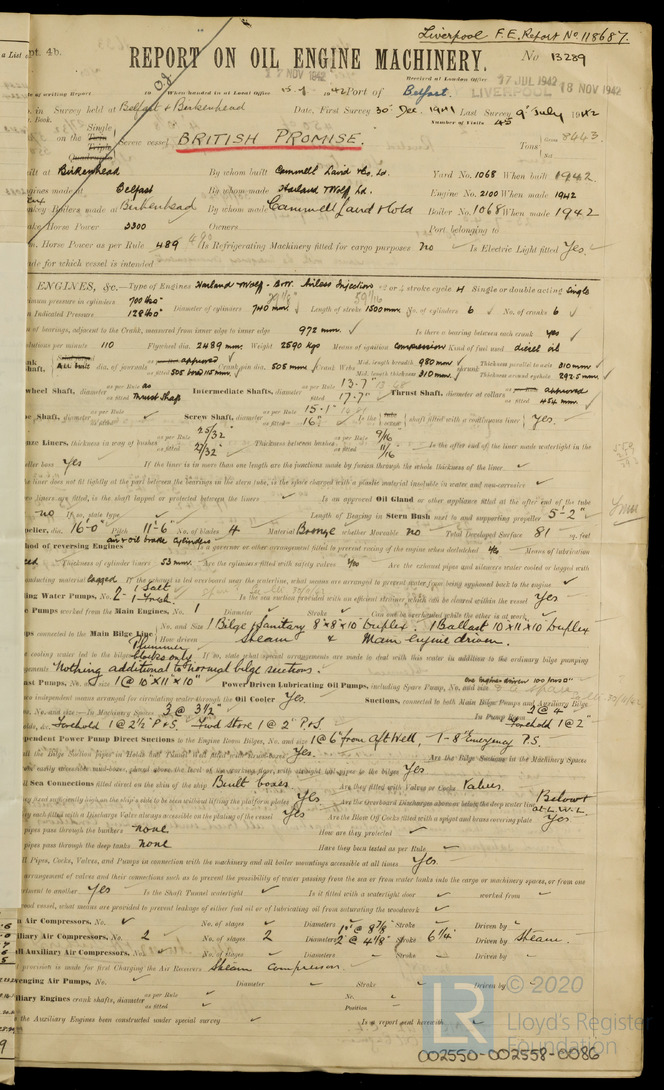 Liverpool F.E. Report No 118687.
a List
pt. 4b.
REPORT ON OIL ENGINE MACHINERY.
No 13289
17 NOV 1942
Received at London Office
17 JUL 1942
LIVERPOOL 18 NOV 1942
of writing Report When handed in at Local Office Port of Belfast.
in Survey held at Belfast & Birkenhead Date, First Survey 30 Dec. 1941 Last Survey 9 July 1942
Book. Number of Visits 45
Single
on the Twin Screw vessel BRITISH PROMISE. Tons Gross 8443
Triple
Quadruple
ilt at Birkenhead By whom built Cammell Laird & Co. Ld. Yard No. 1068 When built 1942.
ngines made at Belfast By whom made Harland & Wolf Ld. Engine No. 2100 When made 1942
key Boilers made at Birkenhead By whom made Cammell Laird & Co Ld Boiler No. 1068 When made 1942
ake Horse Power 3300 Owners Port belonging to
m. Horse Power as per Rule 489 Is Refrigerating Machinery fitted for cargo purposes No Is Electric Light fitted Yes.
ade for which vessel is intended
ENGINES, &c.—Type of Engines Harland-Wolf-B&W. Airless Injection 2 or 4 stroke cycle 4 Single or double acting Single
ximum pressure in cylinders 700 lbs Diameter of cylinders 740 mm. Length of stroke 1500 mm. No. of cylinders 6 No. of cranks 6
n Indicated Pressure 128 lbs
of bearings, adjacent to the Crank, measured from inner edge to inner edge 972 mm. Is there a bearing between each crank yes
olutions per minute 110 Flywheel dia. 2489 mm. Weight 2590 Kgs Means of ignition compression Kind of fuel used diesel oil
ank Shaft, All built dia. of journals as approved as fitted 505 bore 115 mm. Crank pin dia. 505 mm. Crank Webs Mid. length breadth 980 mm Mid. length thickness 310 mm. shrunk Thickness parallel to axis 310 mm Thickness around eyehole 292.5 mm.
wheel Shaft, diameter as per Rule as as fitted Thrust Shaft Intermediate Shafts, diameter as per Rule 13.7" as fitted 17.7" Thrust Shaft, diameter at collars as approved as fitted 454 mm.
be Shaft, diameter as per Rule as fitted Screw Shaft, diameter as per Rule 15.1" as fitted 16" Is the shaft fitted with a continuous liner Yes.
nze Liners, thickness in way of bushes as per Rule 25/32" as fitted 27/32" Thickness between bushes as per Rule 9/16 as fitted 11/16" Is the after end of the liner made watertight in the
eller boss Yes If the liner is in more than one length are the junctions made by fusion through the whole thickness of the liner
liner does not fit tightly at the part between the bearings in the stern tube, is the space charged with a plastic material insoluble in water and non-corrosive
liners are fitted, is the shaft lapped or protected between the liners Is an approved Oil Gland or other appliance fitted at the after end of the tube
no If so, state type Length of Bearing in Stern Bush next to and supporting propeller 5'-2"
peller, dia. 16'-0" Pitch 11'-6" No. of blades 4 Material Bronze whether Moveable no Total Developed Surface 81 sq. feet
hod of reversing Engines air-oil brake cylinders Is a governor or other arrangement fitted to prevent racing of the engine when declutched yes Means of lubrication
ed Thickness of cylinder liners 53 mm. Are the cylinders fitted with safety valves yes Are the exhaust pipes and silencers water cooled or lagged with
nducting material lagged If the exhaust is led overboard near the waterline, what means are arranged to prevent water being syphoned back to the engine
ling Water Pumps, No. 2 - 1 Salt 1 - Fresh. Is the sea suction provided with an efficient strainer which can be cleared within the vessel Yes
e Pumps worked from the Main Engines, No. 1 Diameter Stroke Can one be overhauled while the other is at work
mps connected to the Main Bilge Line No. and Size 1 Bilge & Sanitary 8"x8"x10" Duplex. 1 Ballast 10"x11"x10" Duplex
How driven Steam & Main engine driven.
Plummer blocks only
e cooling water led to the bilges If so, state what special arrangements are made to deal with this water in addition to the ordinary bilge pumping
gements Nothing additional to normal bilge suctions.
ast Pumps, No. and size 1 @ 10"x11"x10" Power Driven Lubricating Oil Pumps, including Spare Pump, No. and size
wo independent means arranged for circulating water through the Oil Cooler Yes. Suctions, connected to both Main Bilge Pumps and Auxiliary Bilge
mps, No. and size:—In Machinery Spaces 3 @ 3½" In Pump Room 3 @ 4"
olds, &c. Forehold 1 @ 2½" P&S. Fwd store 1 @ 2" P&S Forehold 1 @ 2"
ependent Power Pump Direct Suctions to the Engine Room Bilges, No. and size 1 @ 6" from Aft Well, 1-8" Emergency P.S.
ll the Bilge Suction pipes in Holds and Tunnel Well fitted with strum-boxes Yes. Are the Bilge Suctions in the Machinery Spaces
easily accessible mud-boxes, placed above the level of the working floor, with straight tail pipes to the bilges Yes
ll Sea Connections fitted direct on the skin of the ship Built boxes. Are they fitted with Valves or Cocks Valves.
ey fixed sufficiently high on the ship's side to be seen without lifting the platform plates Yes Are the Overboard Discharges above or below the deep water line Below & at L.W.L.
ey each fitted with a Discharge Valve always accessible on the plating of the vessel Yes Are the Blow Off Cocks fitted with a spigot and brass covering plate Yes.
pipes pass through the bunkers none How are they protected
pipes pass through the deep tanks none Have they been tested as per Rule
ll Pipes, Cocks, Valves, and Pumps in connection with the machinery and all boiler mountings accessible at all times Yes.
arrangement of valves and their connections such as to prevent the possibility of water passing from the sea or from water tanks into the cargo or machinery spaces, or from one
artment to another Yes Is the Shaft Tunnel watertight Is it fitted with a watertight door worked from
ood vessel, what means are provided to prevent leakage of either fuel oil or of lubricating oil from saturating the woodwork
n Air Compressors, No. No. of stages Diameters Stroke Driven by
iliary Air Compressors, No. 2 No. of stages 2 Diameters 1st @ 8⅞" 2nd @ 4⅛" Stroke 6¼" Driven by Steam.
ll Auxiliary Air Compressors, No. No. of stages Diameters Stroke Driven by
provision is made for first Charging the Air Receivers Steam Compressor.
enging Air Pumps, No. Diameter Stroke Driven by
iliary Engines crank shafts, diameter as per Rule as fitted No. Position
the Auxiliary Engines been constructed under special survey Is a report sent herewith
© 2020
LR
Lloyd's Register
Foundation
002550-002558-0086